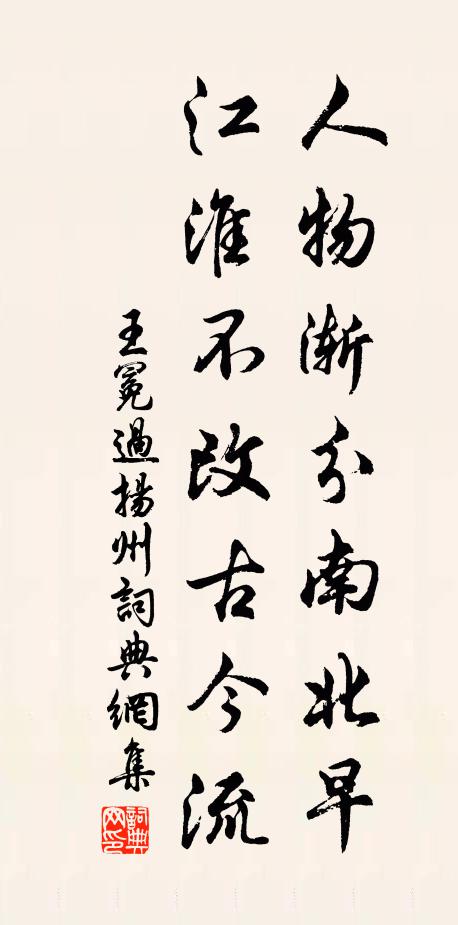 人物漸分南北早
江淮不改古今流
王冕過揚州詞典網集
詞典網印